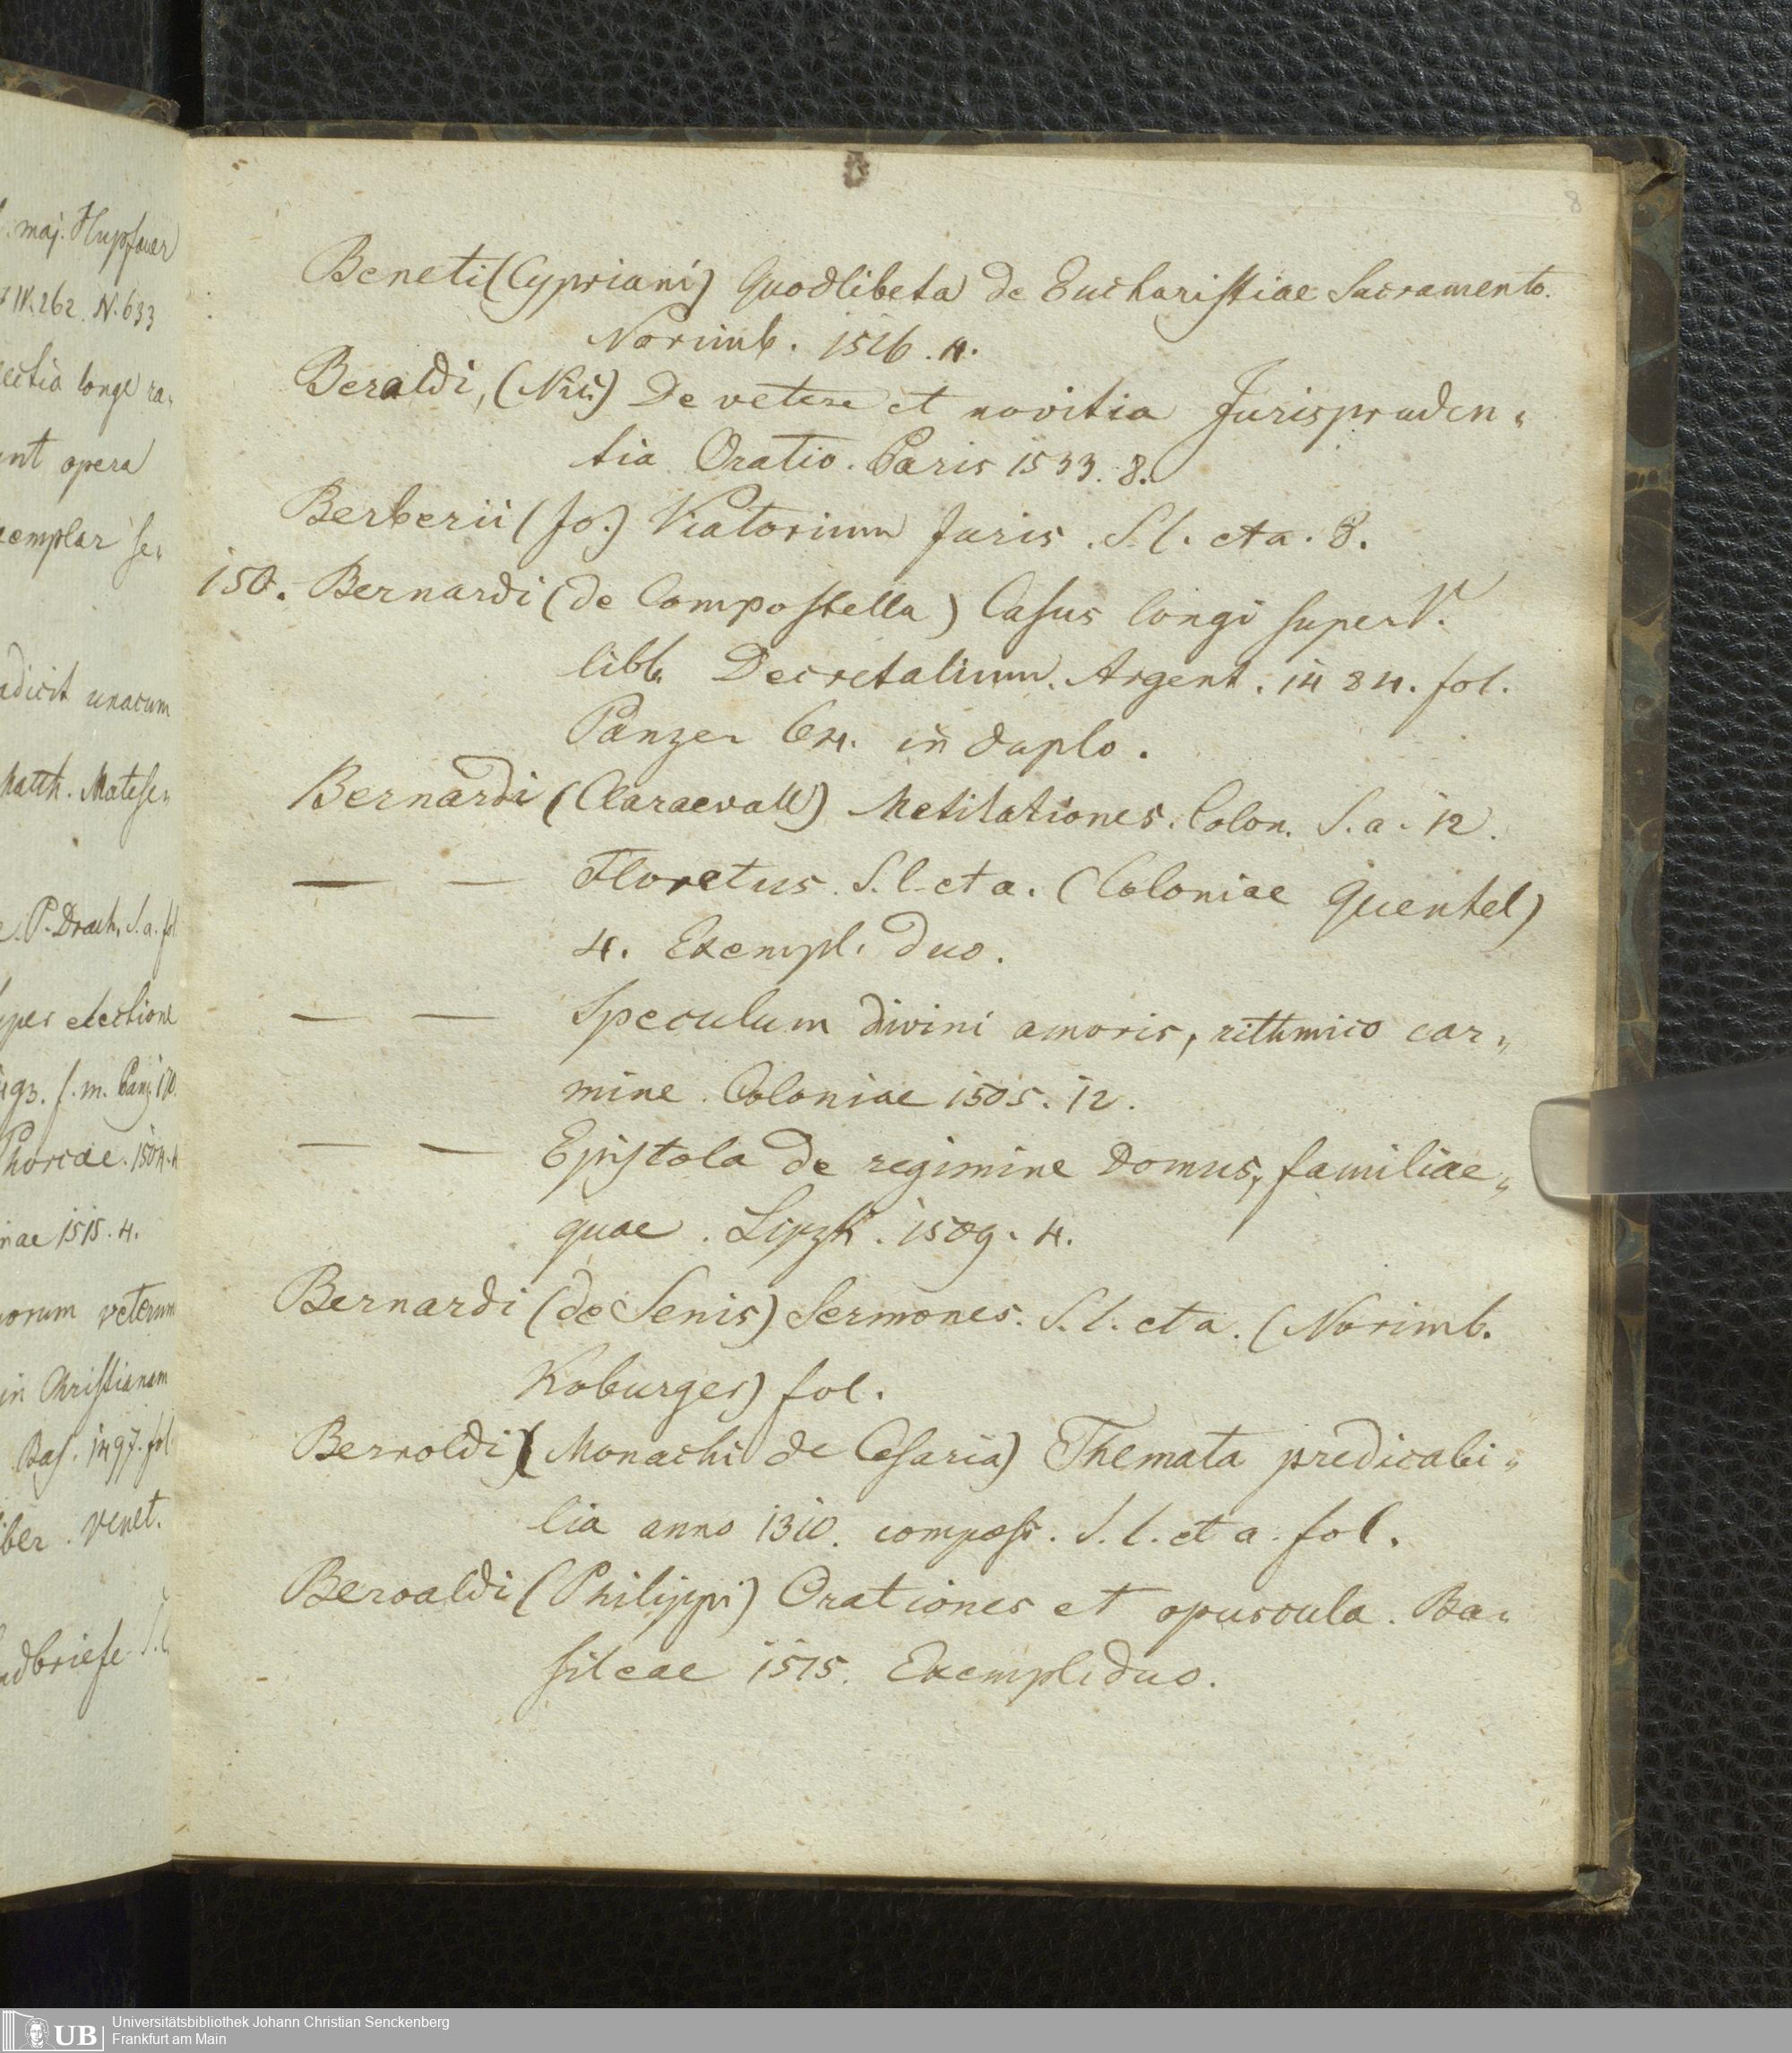 maj. Hupfauer
IV. 262. N. 633
longe ra„
opera
se„
unacum
Matth. Matese„
P. Drach. S. a. fol
electione
f. m. Panz. 170.
Phorcae. 1504. 4
1515. 4.
veterum
in Christianam
Bas. 1497. fol
venet.
8
Beneti (Cypriani) Quodlibeta de Eucharistiae Sacramento.
Norimb. 1516. 4.
Beraldi, (Nic.) De vetere et novitia Jurispruden„
tia Oratio. Paris 1533. 8.
Berberii (Jo.) Viatorium Juris. S. l. et a. 8.
150. Bernardi (de Compostella) Casus longi super V.
libb. Decretalium. Argent. 1484. fol.
Panzer 64. in duplo.
Bernardi (Claraevall) Metitationes. Colon. S. a. 12.
— — Floretus. S. l. et a. (Coloniae Quentel)
4. Exempl. duo.
— — Speculum divini amoris, rithmico car„
mine. Coloniae 1505. 12.
— — Epistola de regimine Domus, familiae„
quae. Lipzk. 1509. 4.
Bernardi (de Senis) Sermones. S. l. et a. (Norimb.
Koburger) fol.
Bernoldi (Monachi de Cesaria) Themata predicabi„
lia anno 1310. compos. S. l. et a. fol.
Beroaldi (Philippi) Orationes et opuscula. Ba„
sileae 1515. Exempl. duo.
UB Universitätsbibliothek Johann Christian Senckenberg
Frankfurt am Main